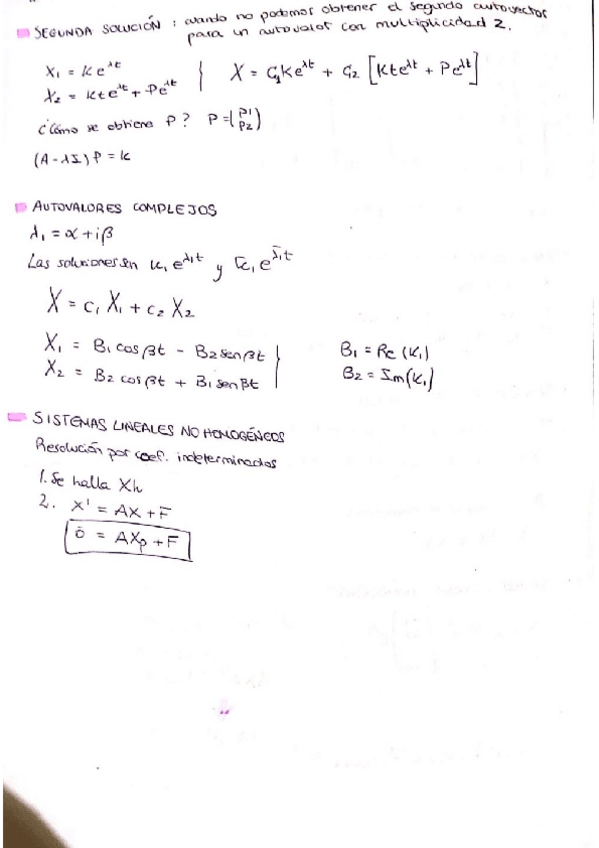 SEGUNDA SOLUCIÓN : cuando no podemos obtener el segundo autovector
para un autovalor con multiplicidad 2.
X₁ = Ke^λt
X₂ = Kte^λt + Pe^λt } X = C₁Ke^λt + C₂ [Kte^λt + Pe^λt]
¿Cómo se obtiene P? P = (P1 P2)
(A - λI) P = K
AUTOVALORES COMPLEJOS
λ₁ = α + iβ
Las soluciones en K₁e^λ₁t y K̄₁e^λ̄₁t
X = C₁X₁ + C₂X₂
X₁ = B₁ cos βt - B₂ sen βt
X₂ = B₂ cos βt + B₁ sen βt }
B₁ = Re (K₁)
B₂ = Im(K₁)
SISTEMAS LINEALES NO HOMOGÉNEOS
Resolución por coef. indeterminados
1. Se halla Xh
2. X' = AX + F
0 = AXp + F